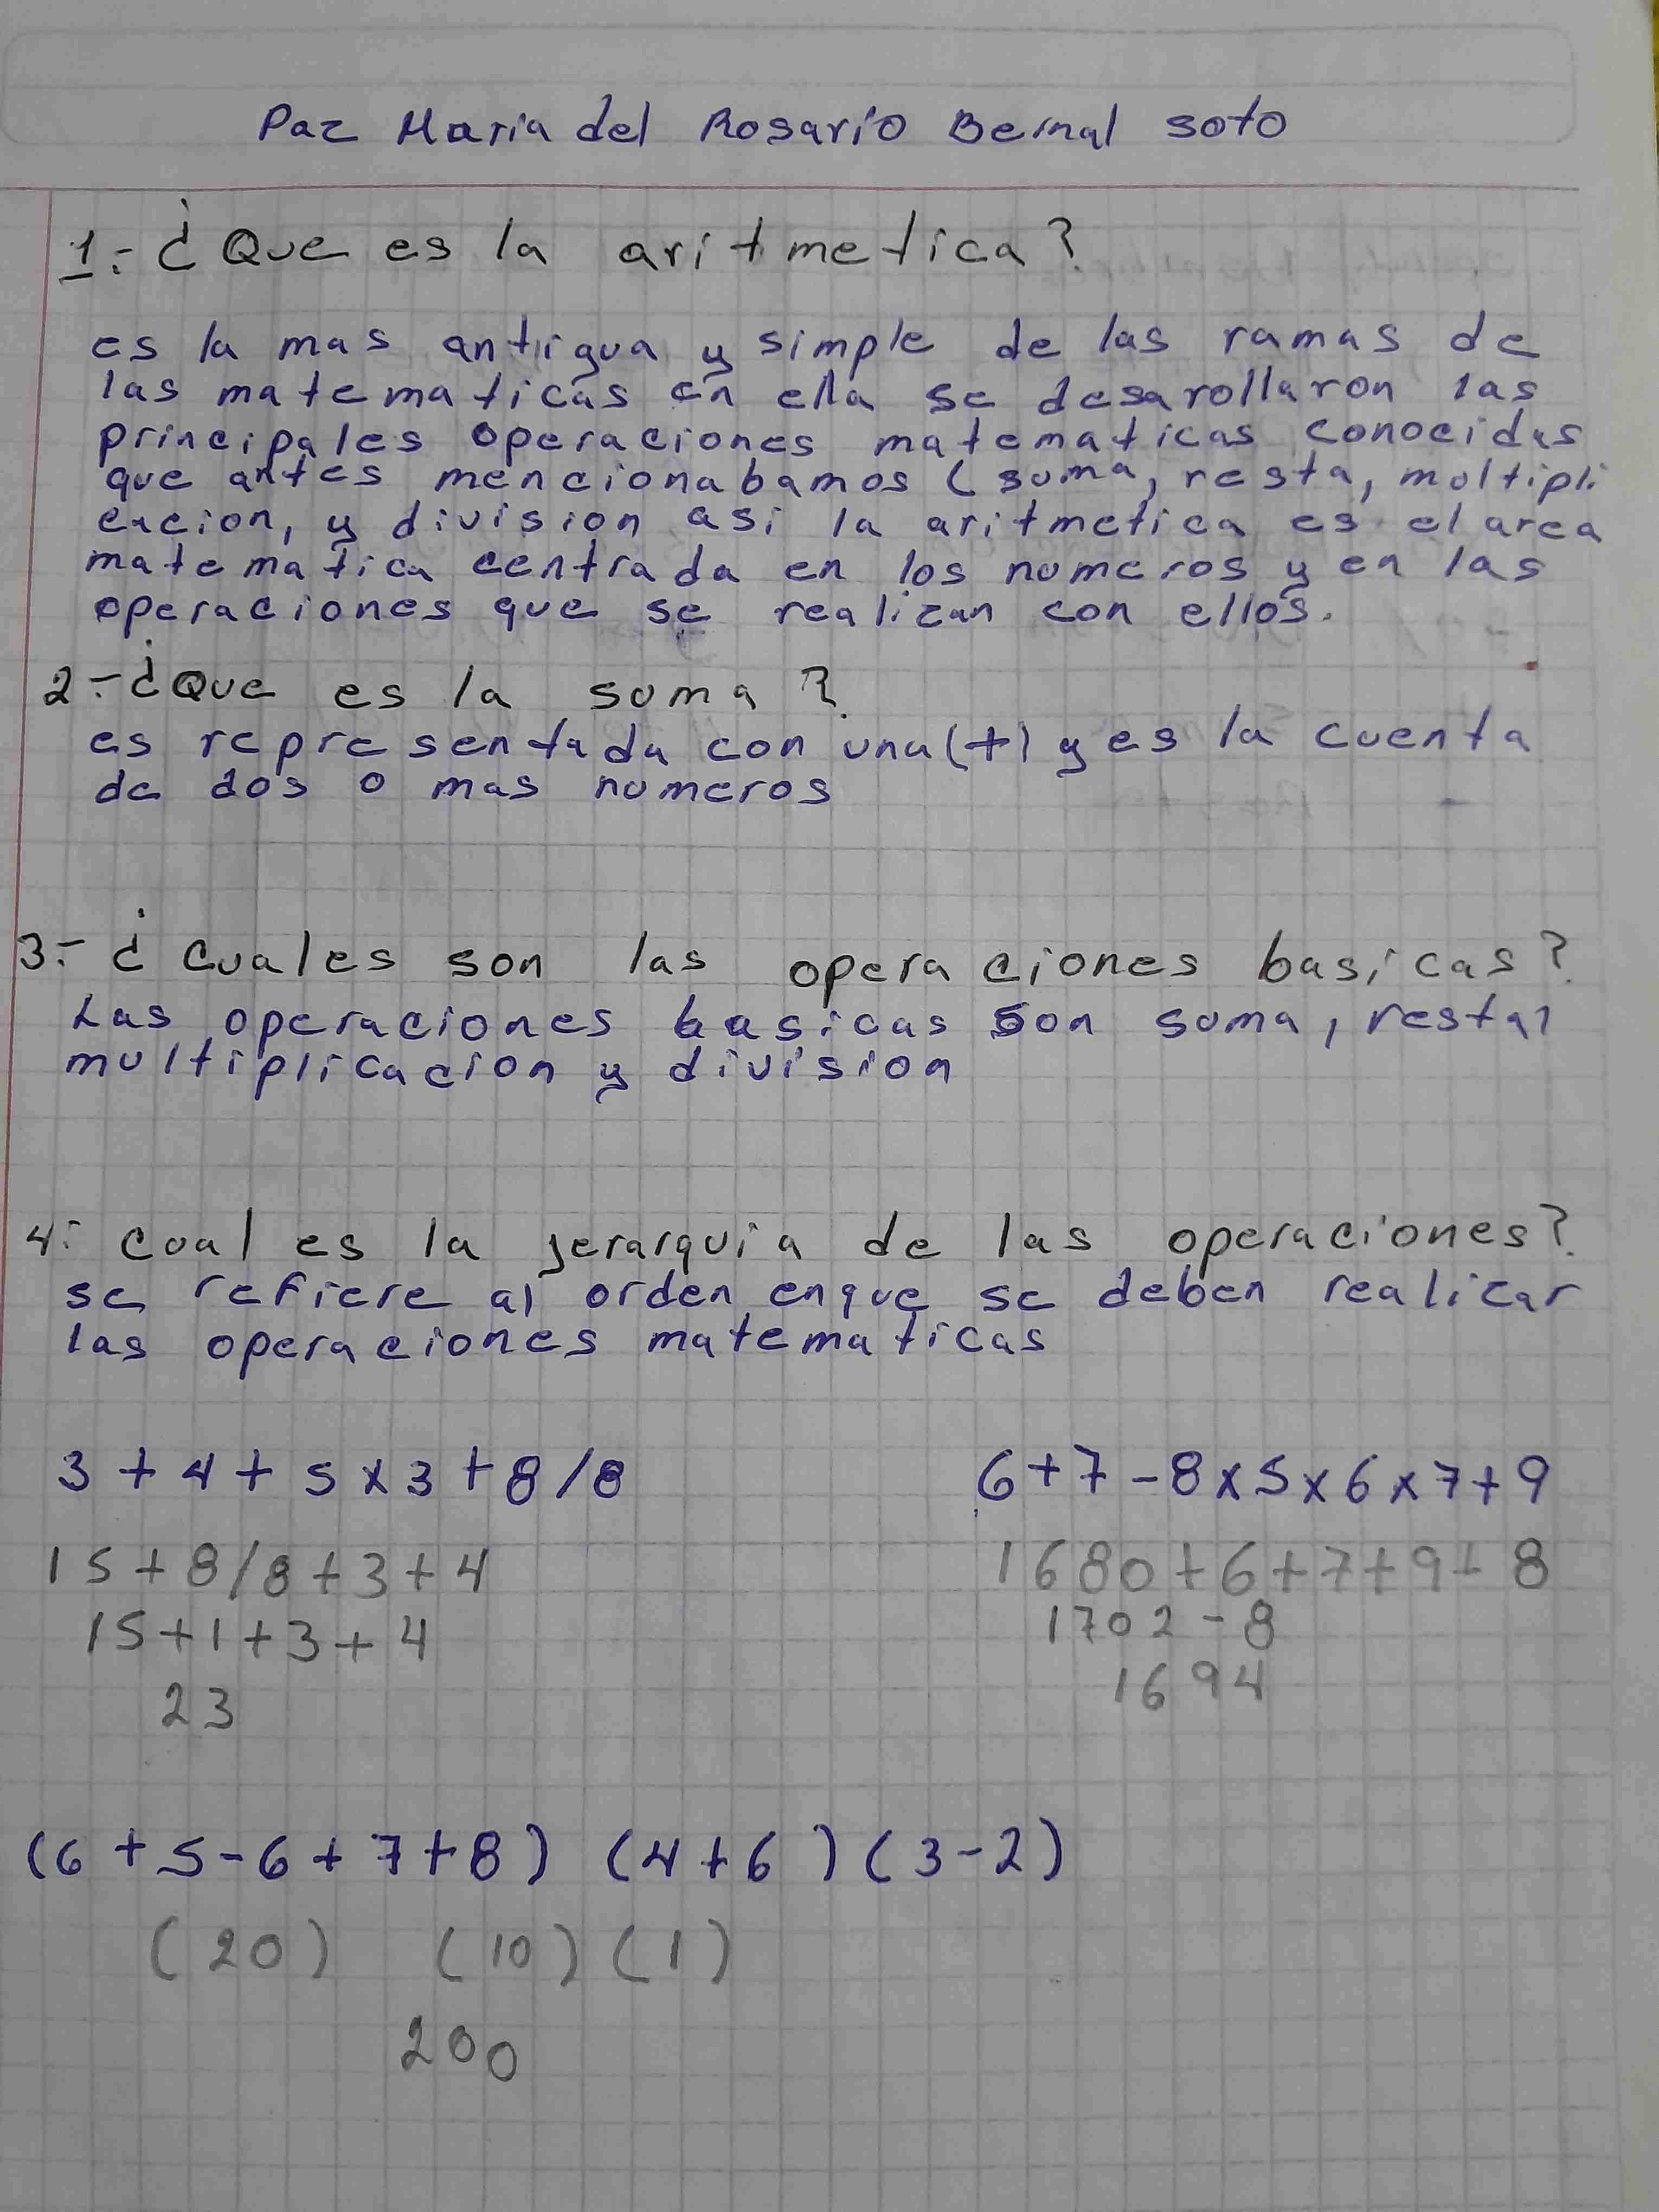 Paz Maria del Rosario Bernal soto
1.- ¿Que es la aritmetica?
es la mas antigua y simple de las ramas de
las matematicas en ella se desarollaron las
principales operaciones matematicas conocidas
que antes mencionabamos (suma, resta, multipli
cacion, y division asi la aritmetica es el area
matematica centrada en los numeros y en las
operaciones que se realizan con ellos.
2.- ¿Que es la suma?
es representada con una (+) y es la cuenta
de dos o mas numeros
3.- ¿cuales son las operaciones basicas?
Las operaciones basicas son suma, resta,
multiplicacion y division
4.- cual es la jerarquia de las operaciones?
se refiere al orden enque se deben realizar
las operaciones matematicas
3 + 4 + 5 x 3 + 8 / 8
15 + 8 / 8 + 3 + 4
15 + 1 + 3 + 4
23
6 + 7 - 8 x 5 x 6 x 7 + 9
1680 + 6 + 7 + 9 - 8
1702 - 8
1694
(6 + 5 - 6 + 7 + 8) (4 + 6) (3 - 2)
(20) (10) (1)
200